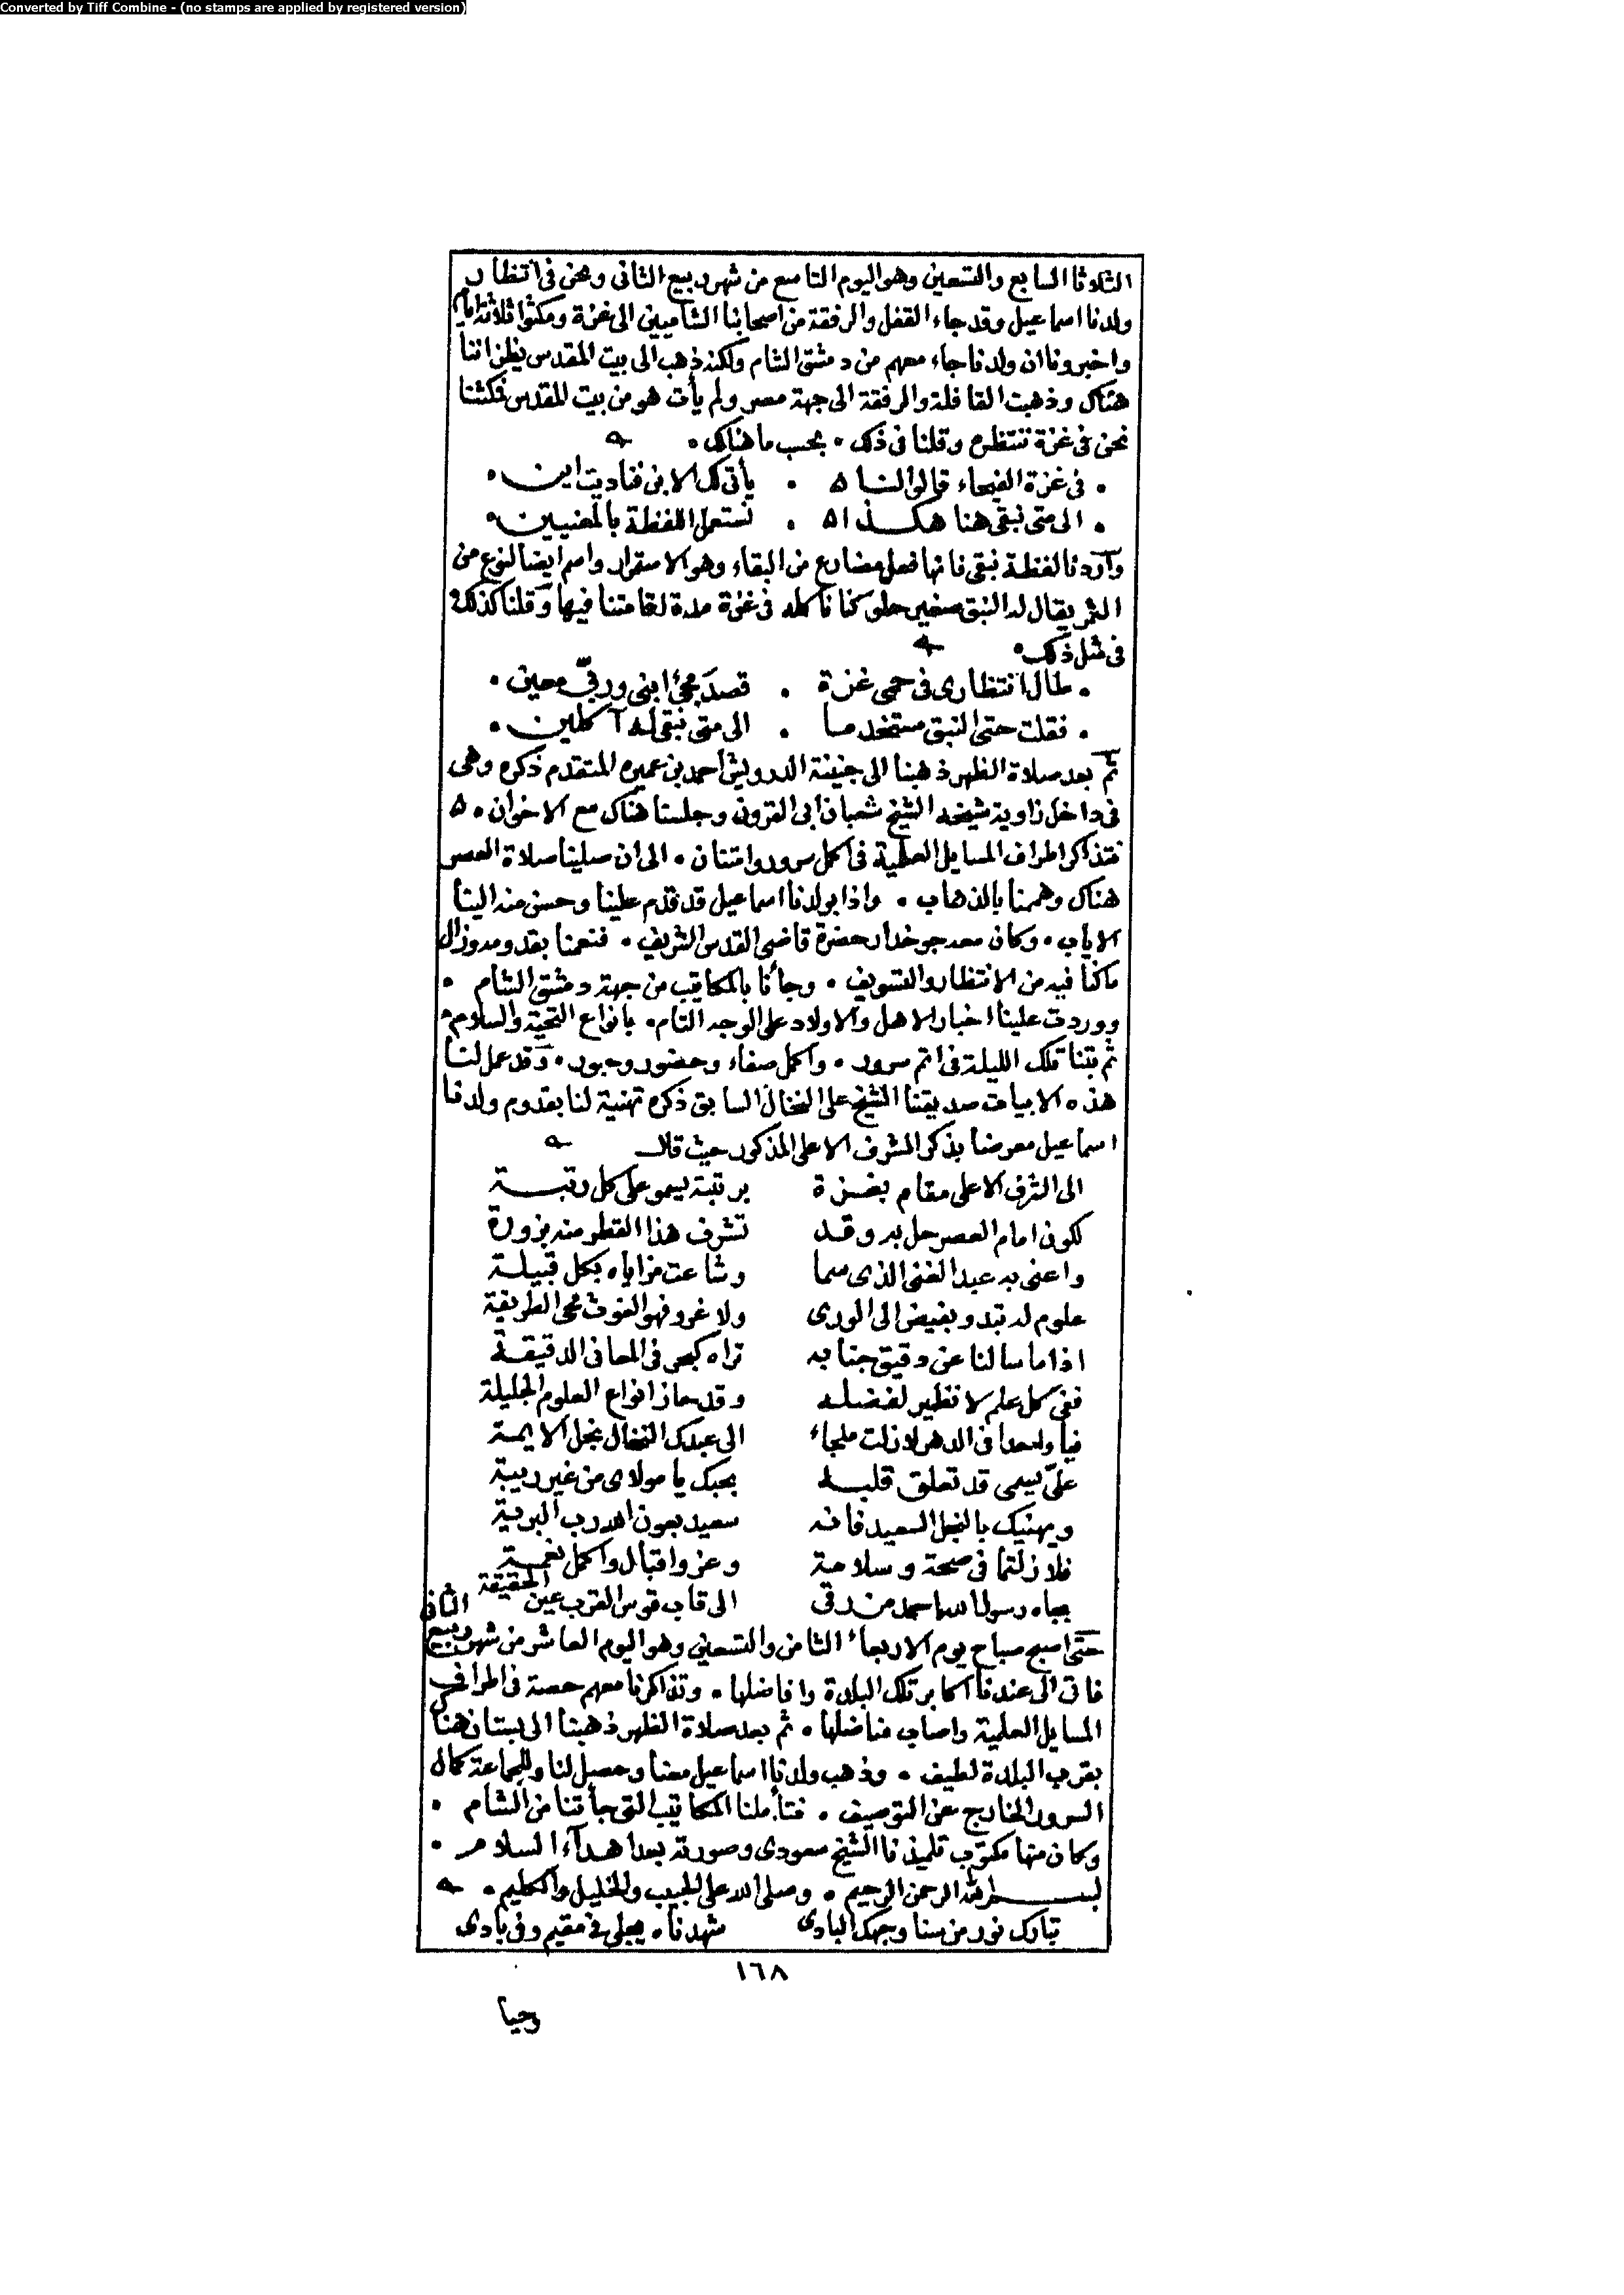 Converted by Tiff Combine - (no stamps are applied by registered version)
الثلاثا السابع والتسعين وهو اليوم التاسع من شهر ربيع الثانى ونحن فى انتظار
ولدنا اسماعيل وقد جاء القفل والرفقة من اصحابنا الشاميين الى غزة ومكثوا ثلاثة ايام
واخبرونا ان ولدنا جاء معهم من دمشق الشام ولكنه ذهب الى بيت المقدس يظن اننا
هناك وذهبت القافلة والرفقة الى جهة مصر ولم يأت هو من بيت المقدس فمكثنا
نحن فى غزة ننتظره وقلنا فى ذلك • بحسب ما هناك •
• فى غزة الفيحاء قالوا لنا • يأتى لك الابن فناديت اين •
• الى متى نبقى هنا هكذا • نستعمل اللفظة بالمعنيين •
وأردنا لفظة نبقى فانها فعل مضارع من البقاء وهو الاستقرار واسم ايضا لنوع من
الثمر يقال له النبق صغير حلو كنا نأكله فى غزة مدة اقامتنا فيها وقلنا كذلك
فى مثل ذلك •
• طال انتظارى فى حمى غزة • قصدَ مجئ ابنى وربّى معين •
• فقلت حتى النبق مستخدما • الى متى نبقى له آكلين •
ثم بعد صلاة الظهر ذهبنا الى جنينة الدرويش أحمد بن عميره المتقدم ذكره وهى
فى داخل زاوية شيخه الشيخ شعبان ابى القرون وجلسنا هناك مع الاخوان •
نتذاكر اطراف المسايل العلمية فى اكمل سرور وامتنان • الى ان صلينا صلاة العصر
هناك وهممنا بالذهاب • واذا بولدنا اسماعيل قد قدم علينا وحسن منه الينا
الاياب • وكان معه جوخدار حضرة قاضى القدس الشريف • فنعمنا بقدومه وزال
ما كنا فيه من الانتظار والتسويف • وجائنا بالمكاتيب من جهة دمشق الشام •
ووردت علينا اخبار الاهل والاولاد على الوجه التام • بانواع التحية والسلام •
ثم بتنا تلك الليلة فى اتم سرور • واكمل صفاء وحضور وحبور • وقد عمل لنا
هذه الابيات صديقنا الشيخ على النخال السابق ذكره تهنية لنا بقدوم ولدنا
اسماعيل معرضا بذكر الشرف الاعلى المذكور حيث قال
الى الشرف الاعلى مقام بغزة برتبة يسمو على كل رتبة
لكونى امام العصر حل به وقد تشرف هذا القطر منه بزورة
واعنى به عبد الغنى الذى سما وشاعت مزاياه بكل قبيلة
علوم له تبدو بفيض الى الورى ولا غرو فهو الغوث محى الطريقة
اذا ما سالنا عن دقيق جنابه تراه كبحر فى المعانى الدقيقة
ففى كل علم لا نظير لفضله وقد حاز انواع العلوم الجليلة
فيا واحدا فى الدهر لا زلت ملجاء الى عبدك النخال نجل الايمة
علىّ يسمى قد تعلق قلبه بحبك يا مولاى من غير ريبة
ويهنيك بالنجل السعيد فانه سعيد بعون الله رب البرية
فلا زلتما فى صحة وسلامة وعز واقبال واكمل نعمة
بجاه رسول الله احمد من رقى الى قاب قوس القرب عين الحقيقة
حتى اصبح صباح يوم الاربعاء الثامن والتسعين وهو اليوم العاشر من شهر ربيع الثانى
فاتى الى عندنا اكابر تلك البلدة وافاضلها • وتذاكرنا معهم حصة فى اطراف
المسايل العلمية واصاب مناضلها • ثم بعد صلاة الظهر ذهبنا الى بستان هناك
بقرب البلدة لطيف • وذهب ولدنا اسماعيل معنا وحصل لنا وللجماعة كمال
السرور الخارج عن التوصيف • فتأملنا المكاتيب التى جأتنا من الشام •
وكان منها مكتوب تلميذنا الشيخ سعودى وصورته بعد اهدآء السلام •
بسم الله الرحمن الرحيم • وصلى الله على الحبيب والخليل والكليم •
تبارك نور من سنا وجهك البادى شهدناه يجلى فى مقيم وفى بادى
١٦٨
وحيا